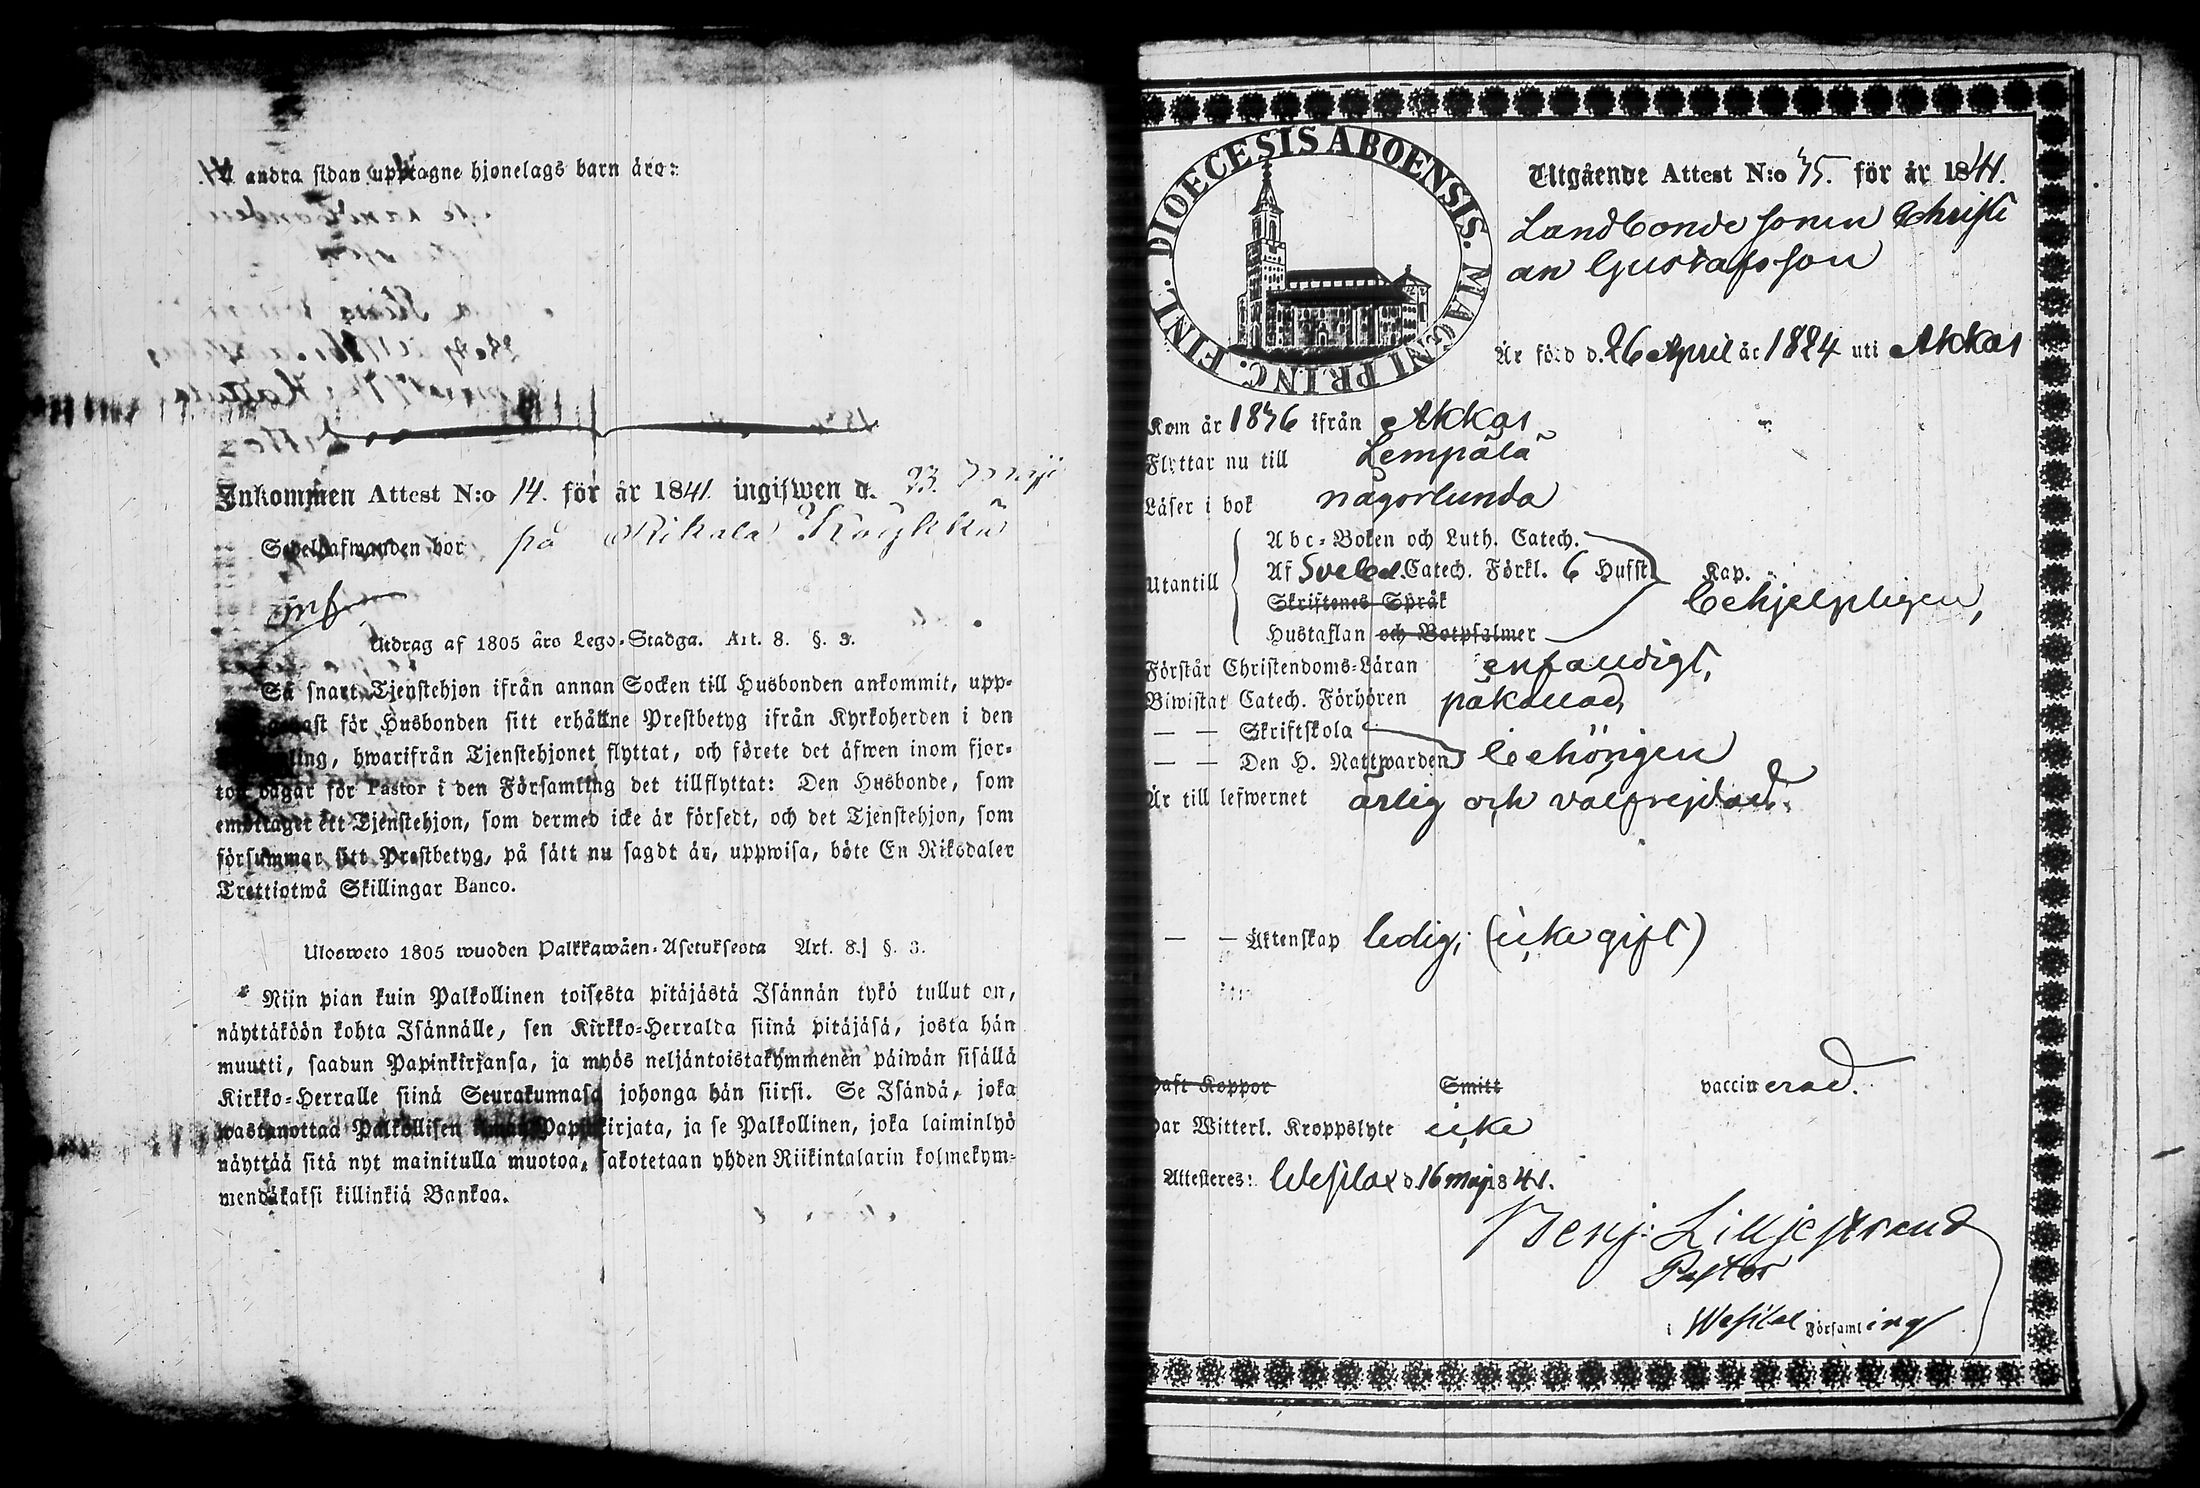 andra sidan upptagne hjonelags barn äro:
Inkommen Attest N:o 14. för år 1841. ingifwen d. 23.
Sedelhafwanden bor på
Utdrag af 1805 års Lego-Stadga. Art. 8. §. 3.
Så snart Tjenstehjon ifrån annan Socken till Husbonden ankommit, upp-
för Husbonden sitt erhållne Prestbetyg ifrån Kyrkoherden i den
hwarifrån Tjenstehjonet flyttat, och förete det äfwen inom fjor-
ton dagar för Pastor i den Församling det tillflyttat: Den Husbonde, som
emottaget ett Tjenstehjon, som dermed icke är försedt, och det Tjenstehjon, som
försummar sitt Prestbetyg, på sätt nu sagdt är, uppwisa, böte En Riksdaler
Trettiotwå Skillingar Banco.
Ulosweto 1805 wuoden Palkkawäen-Asetuksesta Art. 8. §. 3.
Niin pian kuin Palkollinen toisesta pitäjästä Isännän tykö tullut on,
näyttäköön kohta Isännälle, sen Kirkko-Herralda siinä pitäjäsä, josta hän
muutti, saadun Papinkirjansa, ja myös neljäntoistakymmenen päiwän sisällä
Kirkko-Herralle siinä Seurakunnasa johonga hän siirsi. Se Isändä, joka
wastanottaa Palkollisen ilman Papinkirjata, ja se Palkollinen, joka laiminlyö
näyttää sitä nyt mainitulla muotoa, sakotetaan yhden Riikintalarin kolmekym-
mendäkaksi killinkiä Bankoa.
FINL. DIOECESIS ABOENSIS. MAGNI PRINC.
Utgående Attest N:o 35. för år 1841.
Landbonde sonen Christi
an Gustafsson
Är född d. 26 April år 1824 uti Akkas
Kom år 1836 ifrån Akkas
Flyttar nu till Lempälä
Läser i bok någorlunda
Utantill Abc-Boken och Luth. Catech.
Af Svebel. Catech. Förkl. 6 Hufst. Kap.
Skriftenes Språk behjelpligen,
Hustaflan och Botpsalmer
Förstår Christendoms-Läran enfaudigt,
Biwistat Catech. Förhören påkallad,
— — Skriftskola
— — Den H. Nattwarden behörigen
Är till lefwernet ärlig och välfrejdad.
— — Äktenskap ledig; (icke gift)
Haft Koppor Smitt vaccinerad.
Har Witterl. Kroppslyte icke
Attesteres: Westlax d. 16 maj 1841.
Benj. Lilljestrand
Pastor
i Församling